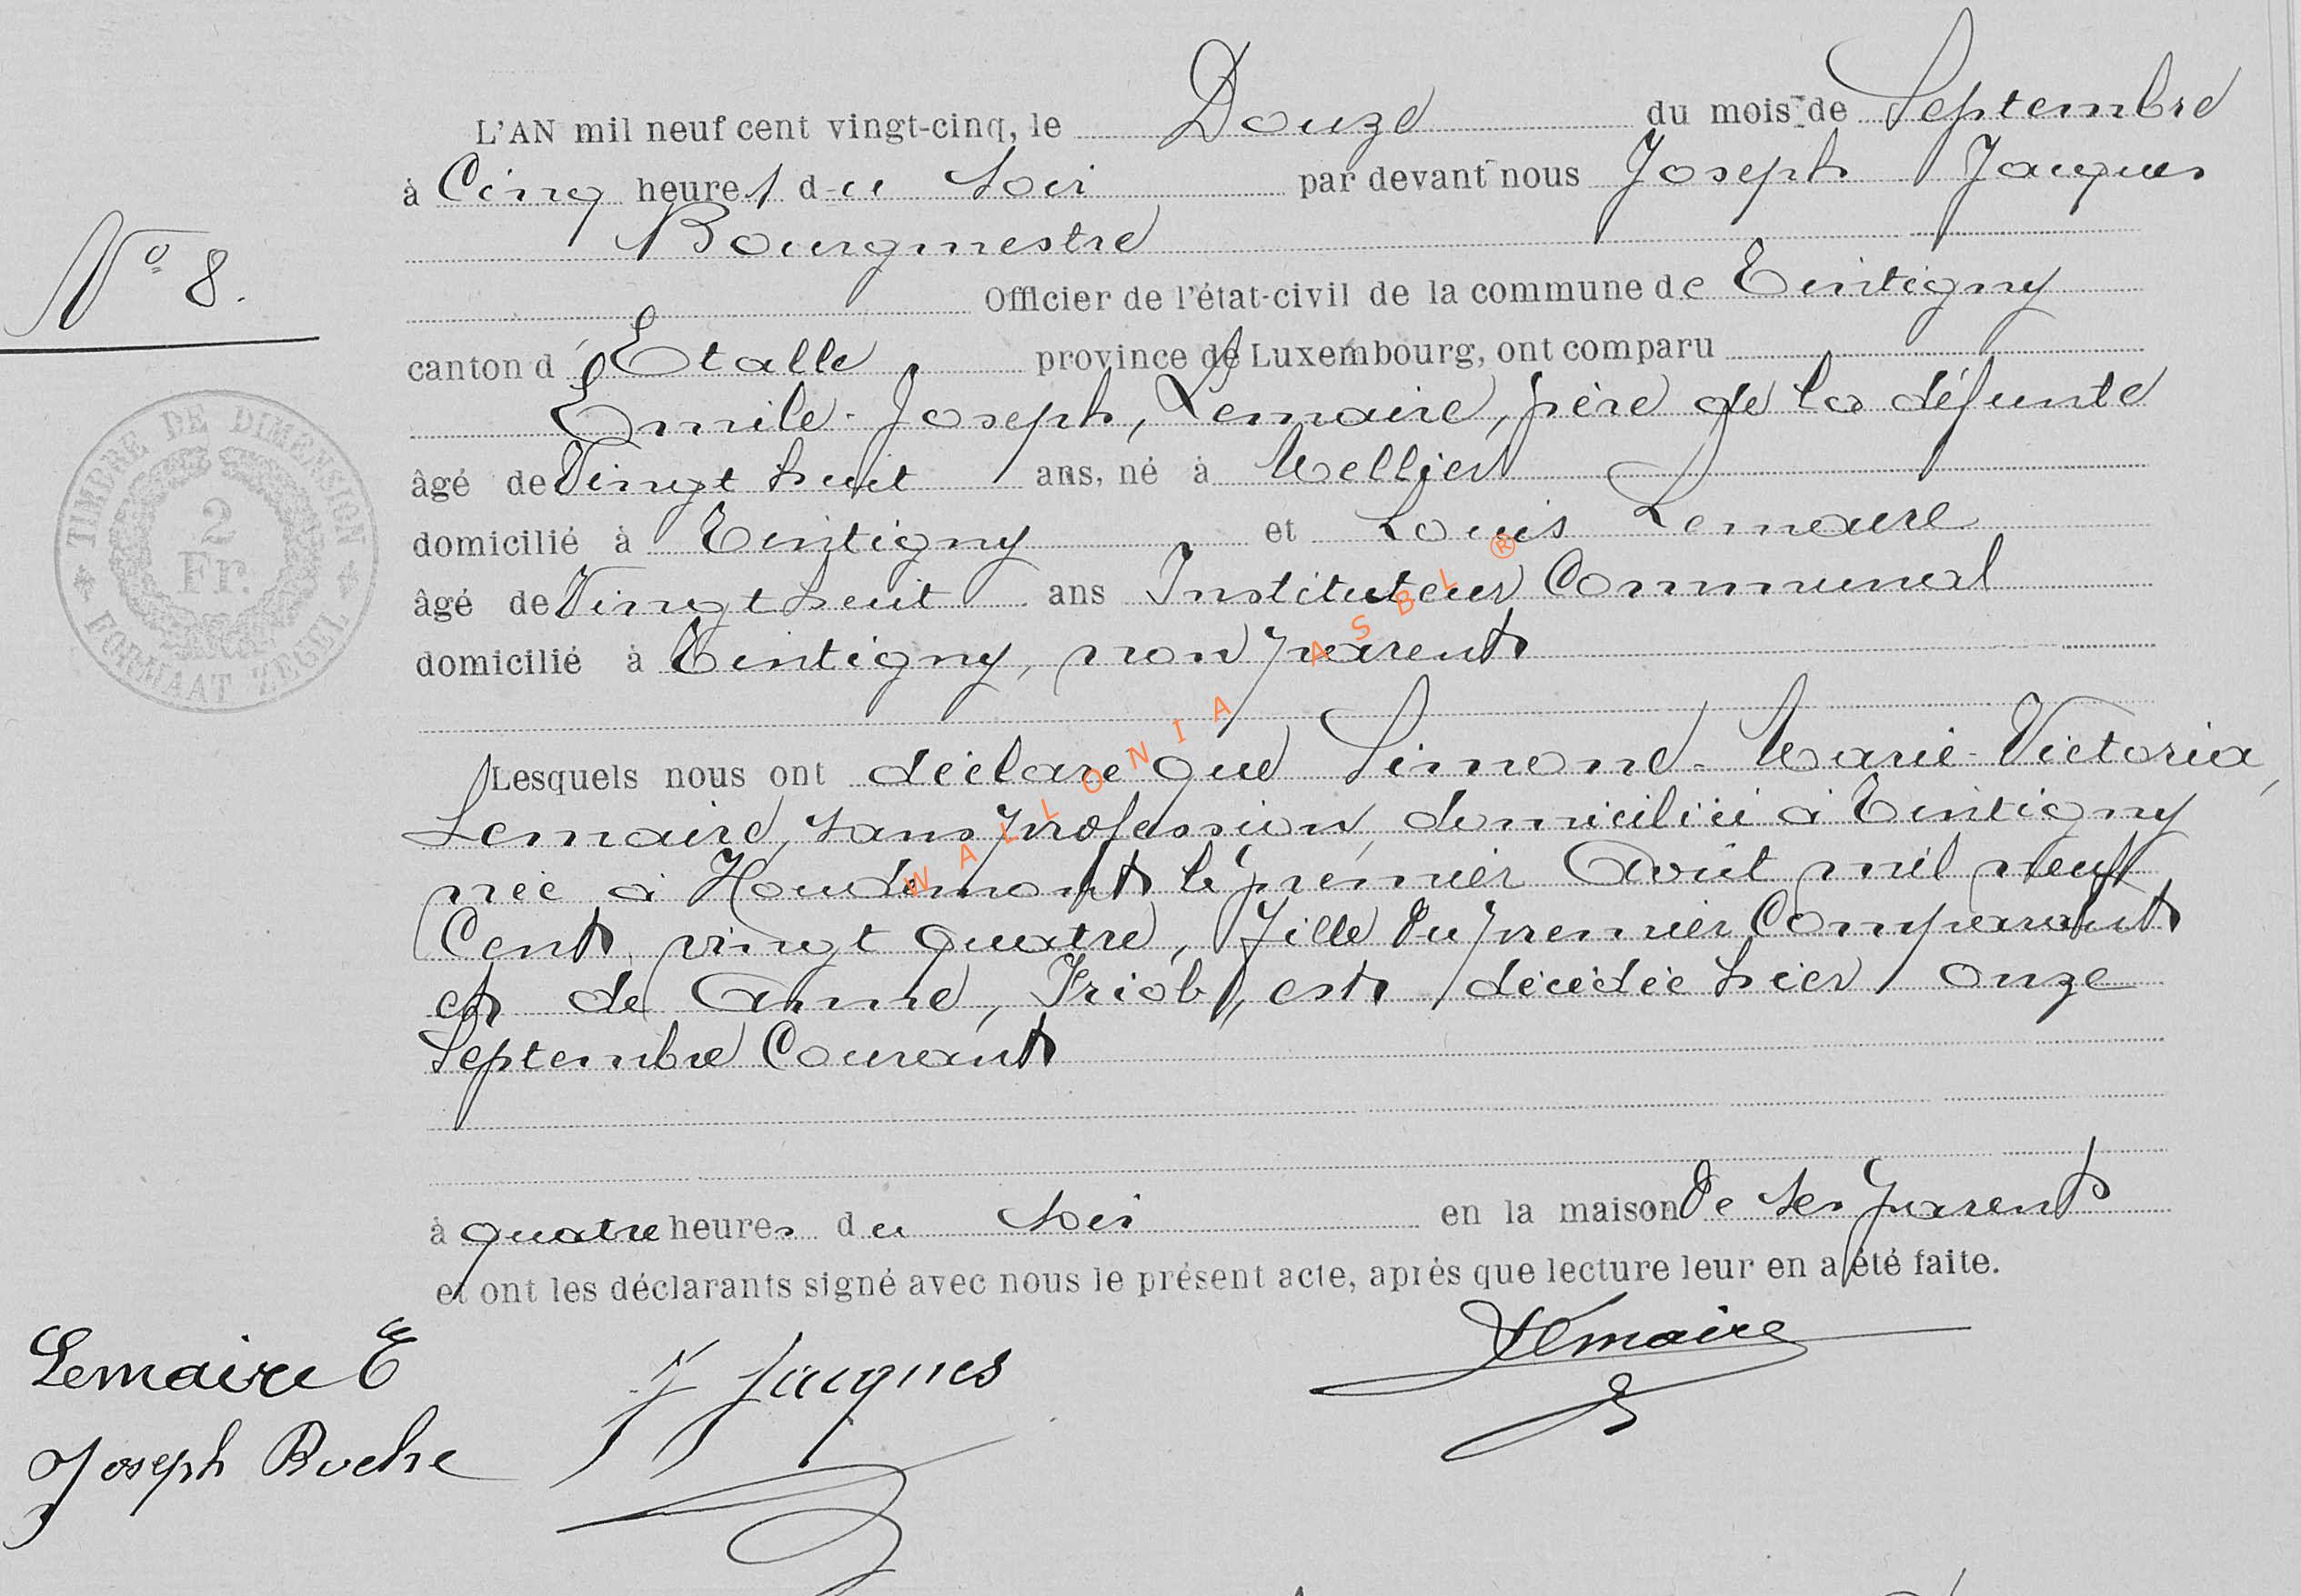 L'AN mil neuf cent vingt-cinq, le Douze du mois de Septembre
à Cinq heures du soir par devant nous Joseph Jacques
Bourgmestre
N° 8.
Officier de l'état-civil de la commune de Tintigny
canton d'Etalle province de Luxembourg, ont comparu
Emile-Joseph, Lemaire, père de la défunte
âgé de Vingt huit ans, né à Mellier
domicilié à Tintigny et Louis Lemaire
âgé de Vingt huit ans Instituteur Communal
domicilié à Tintigny, non parent
TIMBRE DE DIMENSION
2
Fr.
FORMAAT ZEGEL
Lesquels nous ont déclaré que Simone-Marie-Victoria,
Lemaire, sans profession, domiciliée à Tintigny
née à Houdemont le premier Août mil neuf
Cent vingt quatre, fille du premier Comparant
et de Anne, Friob, est décédée hier onze
Septembre Courant
à quatre heures du soir en la maison de ses parents
et ont les déclarants signé avec nous le présent acte, après que lecture leur en a été faite.
Lemaire E
J Jacques
Lemaire
Joseph Roche
WALLONIA ASBL ®